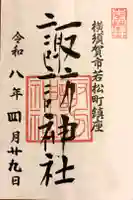 横須賀市若松町鎮座
諏訪神社
令和八年四月廿九日